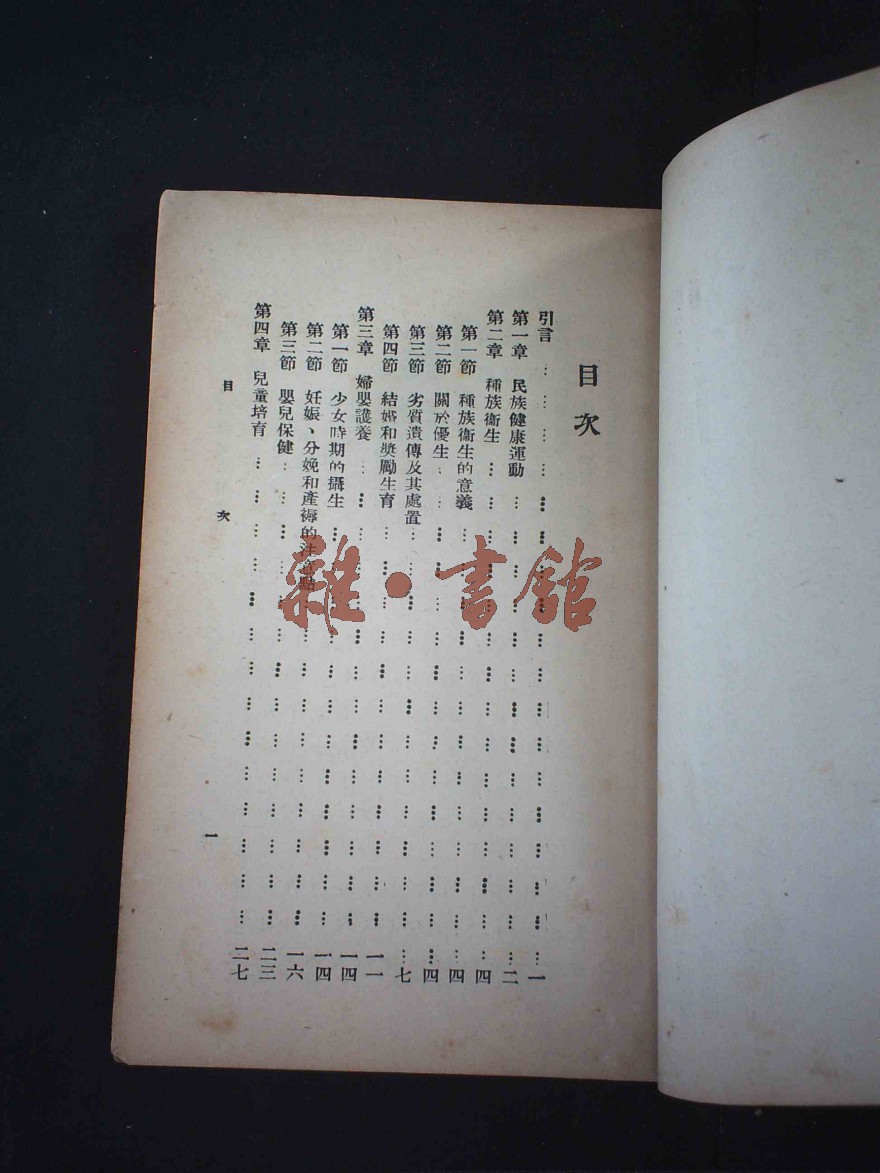 目次
引言 … … … … … … … … … … … … … … … … … … 一
第一章 民族健康運動 … … … … … … … … … … … … … … 二
第二章 種族衞生 … … … … … … … … … … … … … … 四
第一節 種族衞生的意義 … … … … … … … … … … … … … 四
第二節 關於優生 … … … … … … … … … … … … … … 四
第三節 劣質遺傳及其處置 … … … … … … … … … … … … … 七
第四節 結婚和獎勵生育 … … … … … … … … … … … … 一一
第三章 婦嬰護養 … … … … … … … … … … … … … … 一四
第一節 少女時期的攝生 … … … … … … … … … … … … 一四
第二節 妊娠、分娩和產褥的注意點 … … … … … … … … … 一六
第三節 嬰兒保健 … … … … … … … … … … … … … 二三
第四章 兒童培育 … … … … … … … … … … … … … … 二七
目次
一
雜·書館